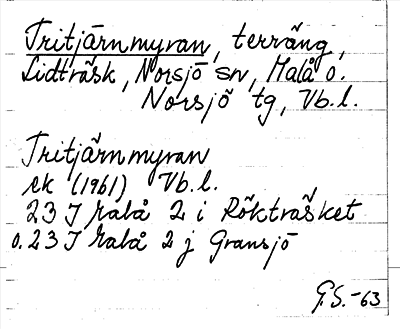 Tritjärnmyran, terräng,
Lidträsk, Norsjö sn, Malå o.
Norsjö tg, Vb.l.
Tritjärnmyran
ek (1961) Vb.l.
23 J Malå 2 i Rökträsket
o. 23 J Malå 2 j Gransjö
G.S.-63